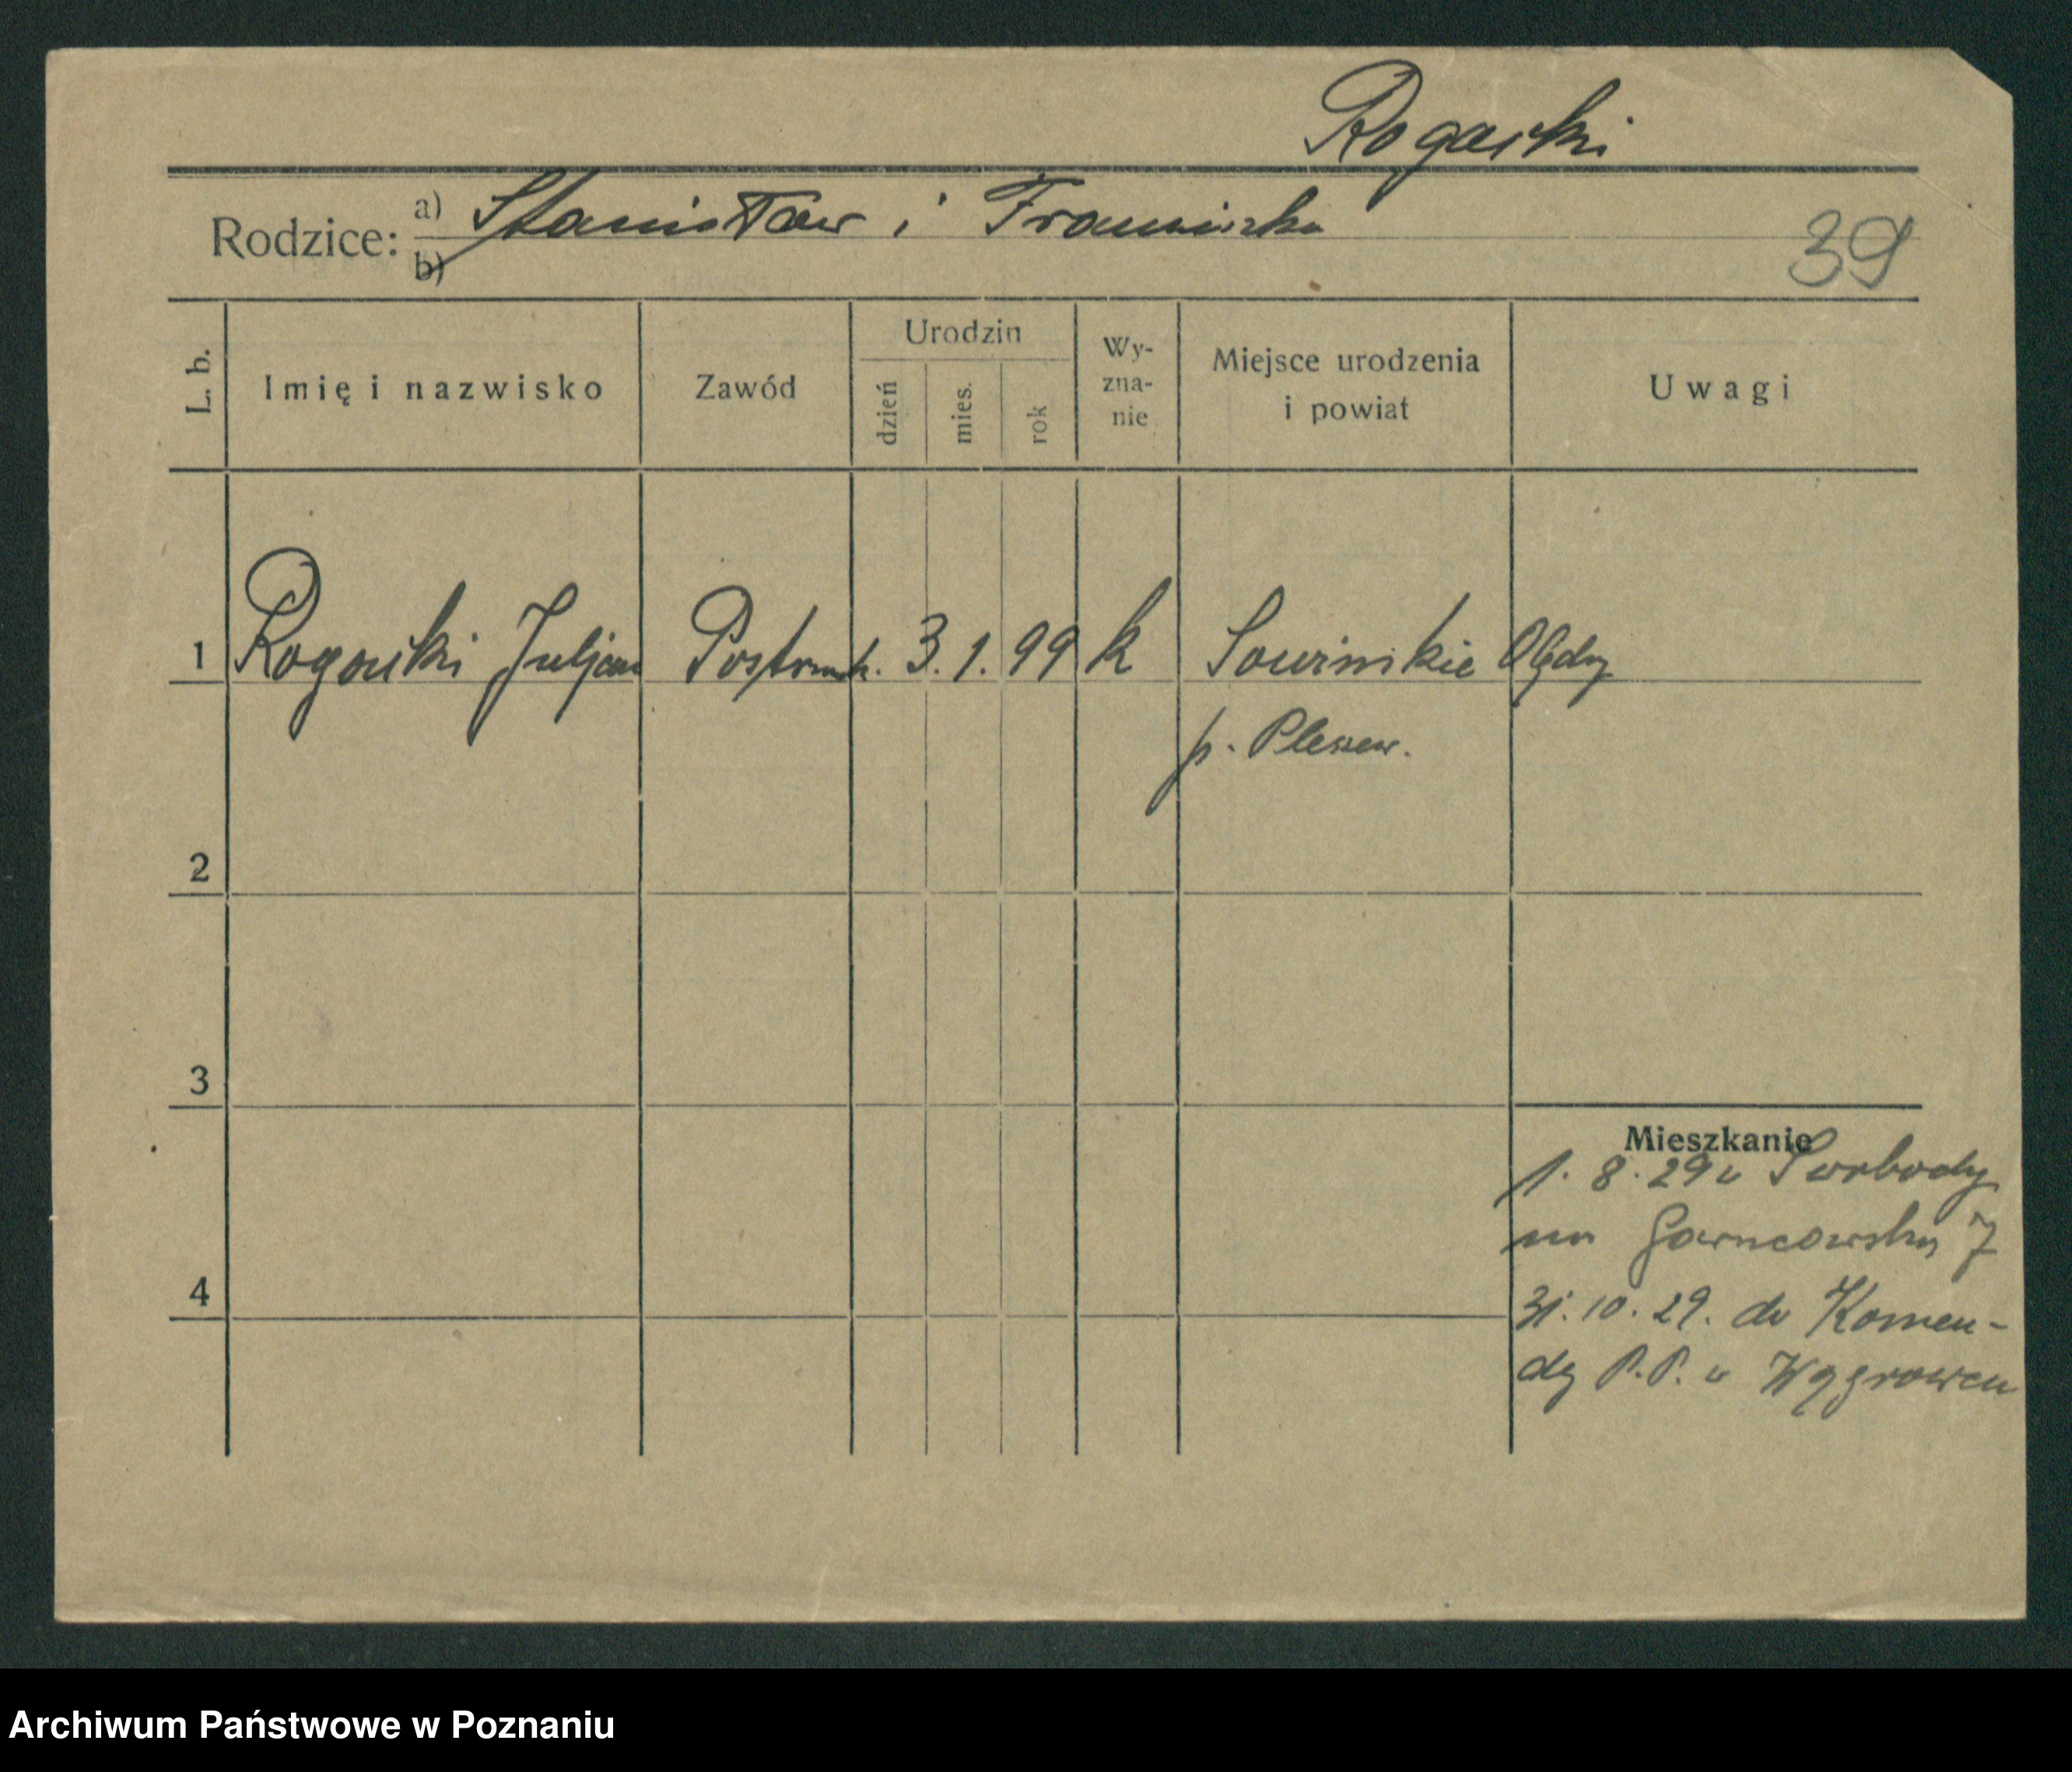 Rogacki
Rodzice: a) Stanisław i Franciszka
b)
39
L. b. Imię i nazwisko Zawód Urodzin dzień mies. rok Wy-zna-nie Miejsce urodzenia i powiat Uwagi
1 Rogacki Juljan Posterunk. 3. 1. 99 k Sowińskie Olędry
p. Pleszew.
2
3
4
Mieszkanie
1. 8. 29 u Swobody
na Garncarską 7
31. 10. 29. do Komen-
dy P.P. w Wągrowcu
Archiwum Państwowe w Poznaniu